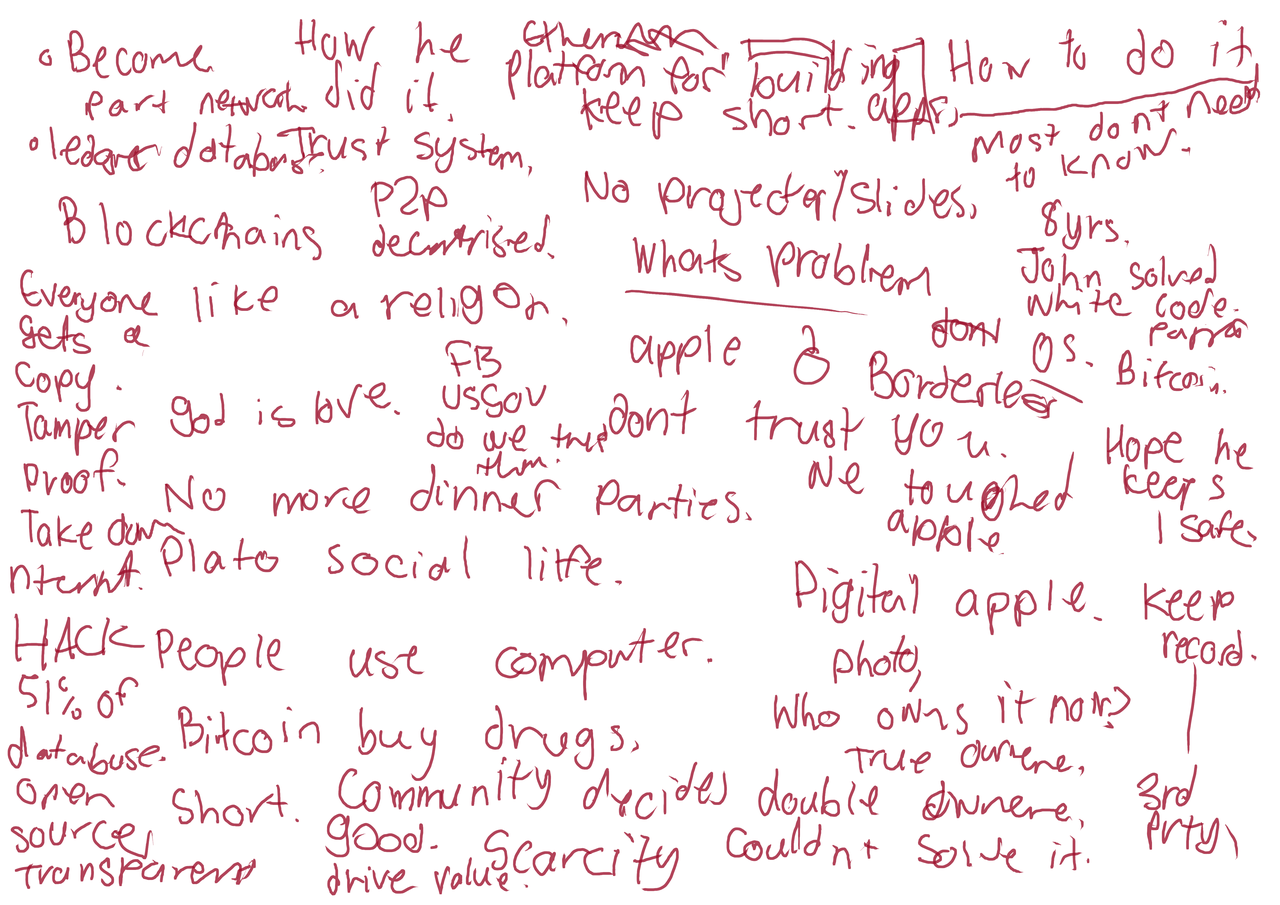 • Become
part network
How he
did it.
platform for building
keep short. apps.
How to do it
most dont need
to know.
• ledger
Trust system,
No projector/slides,
P2P
Blockchains
8yrs.
Whats problem
John solved
white code.
OS.
Bitcoin.
Everyone
gets a
copy.
Tamper
proof.
Take down
like a religon.
god is love.
FB
USGOV
do we
apple
Borderless
dont trust you.
We touched
apple
Hope he
keeps
safe.
No more dinner parties.
Plato social life.
Digital apple.
photo,
keep
record.
3rd
prty,
HACK
51% of
database.
open
source,
transparent
People use computer.
Bitcoin buy drugs,
Who owns it now?
True
Short.
Community decides
good.
double
Scarcity
drive value.
Couldnt solve it.